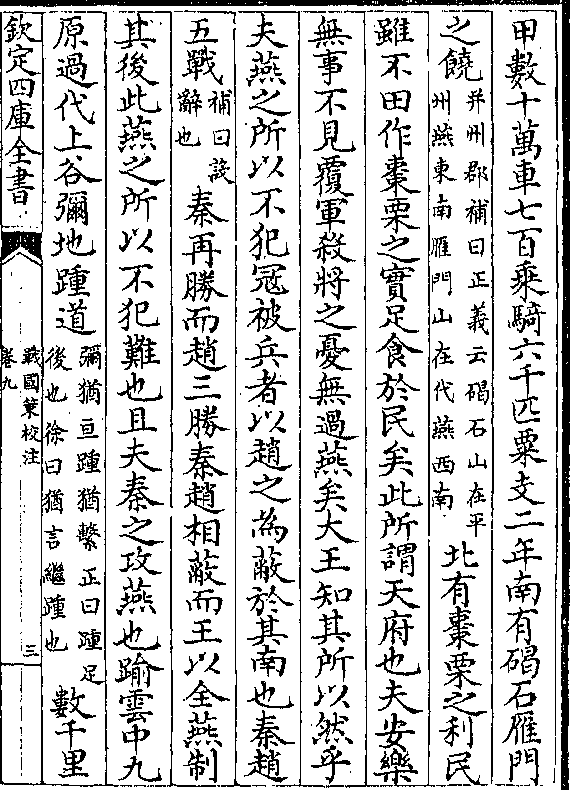 甲數十萬車七百乘騎六千匹粟支二年南有碣石雁門
之饒幷州郡補曰正義云碣石山在平州燕東南雁門山在代燕西南北有棗栗之利民
雖不田作棗栗之實足食於民矣此所謂天府也夫安樂
無事不見覆軍殺將之憂無過燕矣大王知其所以然乎
夫燕之所以不犯冦被兵者以趙之為蔽於其南也秦趙
五戰補曰設辭也秦再勝而趙三勝秦趙相蔽而王以全燕制
其後此燕之所以不犯難也且夫秦之攻燕也踰雲中九
原過代上谷彌地踵道彌猶亘踵猶繫正曰踵足後也徐曰猶言繼踵也數千里
欽定四庫全書
戰國策校注
卷九
三